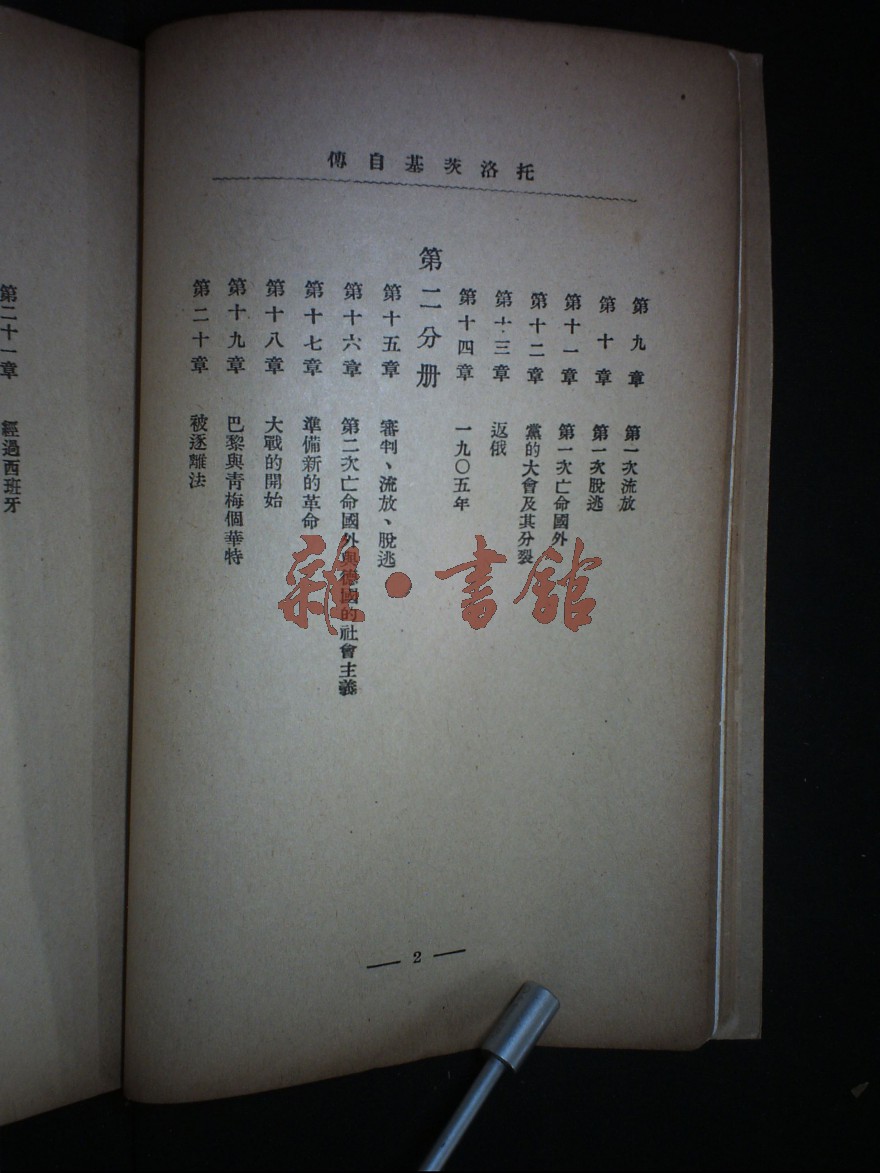 托洛茨基自傳
第九章 第一次流放
第十章 第一次脫逃
第十一章 第一次亡命國外
第十二章 黨的大會及其分裂
第十三章 返俄
第十四章 一九〇五年
第二分册
第十五章 審判、流放、脫逃
第十六章 第二次亡命國外與德國的社會主義
第十七章 準備新的革命
第十八章 大戰的開始
第十九章 巴黎與青梅個華特
第二十章 被逐離法
— 2 —
第二十一章 經過西班牙
雜·書館